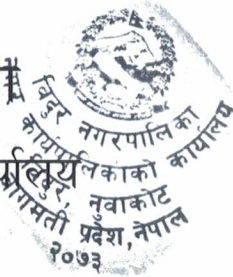 विदुर नगरपालिका
कार्यपालिकाको कार्यालय
नुवाकोट
बागमती प्रदेश, नेपाल
२०७३